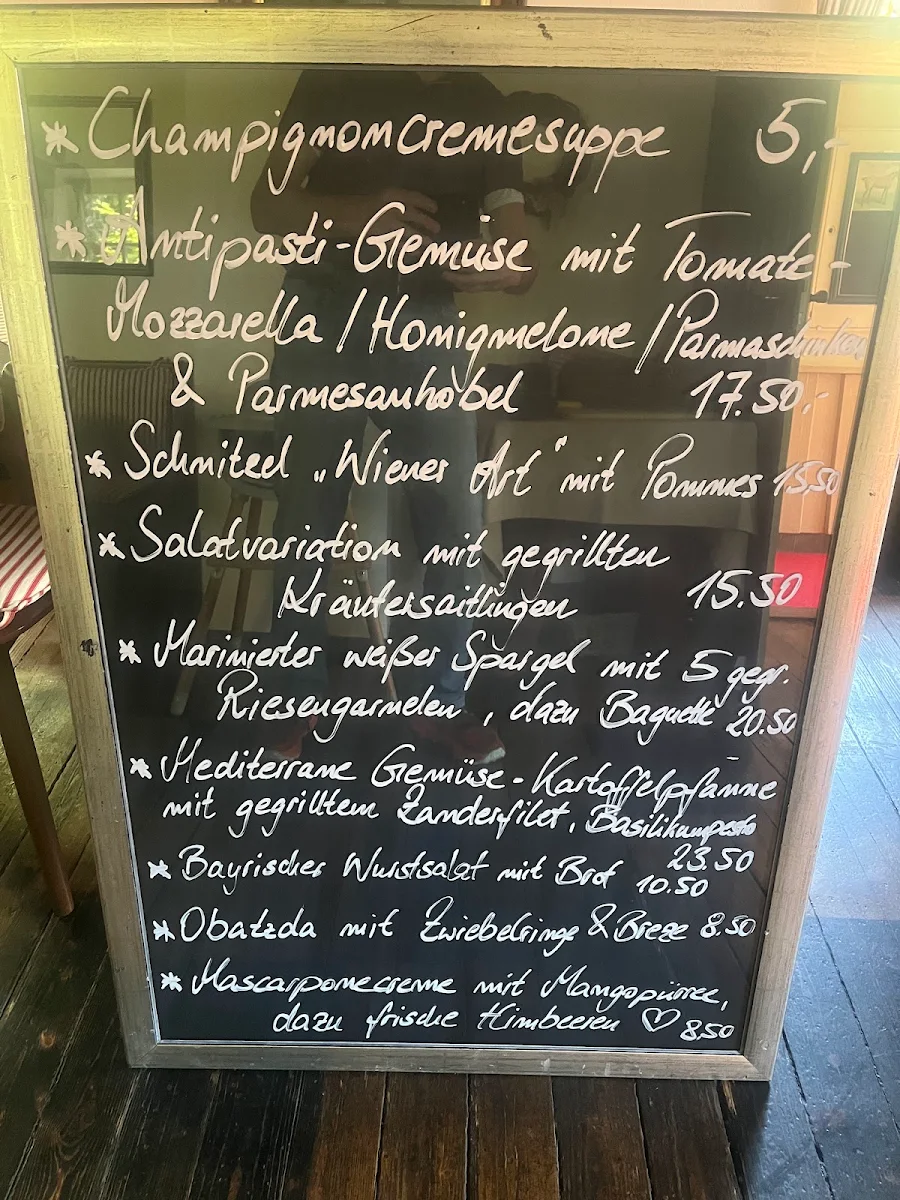 * Champignoncremesuppe 5,-
* Antipasti-Gemüse mit Tomate-
Mozzarella / Honigmelone / Parmaschinken
& Parmesanhobel 17.50,-
* Schnitzel „Wiener Art" mit Pommes 15,50
* Salatvariation mit gegrillten
Kräutersaitlingen 15.50
* Marinierter weißer Spargel mit 5 gegr.
Riesengarnelen, dazu Baguette 20.50
* Mediterrane Gemüse-Kartoffelpfanne
mit gegrilltem Zanderfilet, Basilikumpesto
23.50
* Bayrischer Wurstsalat mit Brot 10.50
* Obatzda mit Zwiebelringe & Breze 8.50
* Mascarponecreme mit Mangopürree,
dazu frische Himbeeren ♡ 8,50